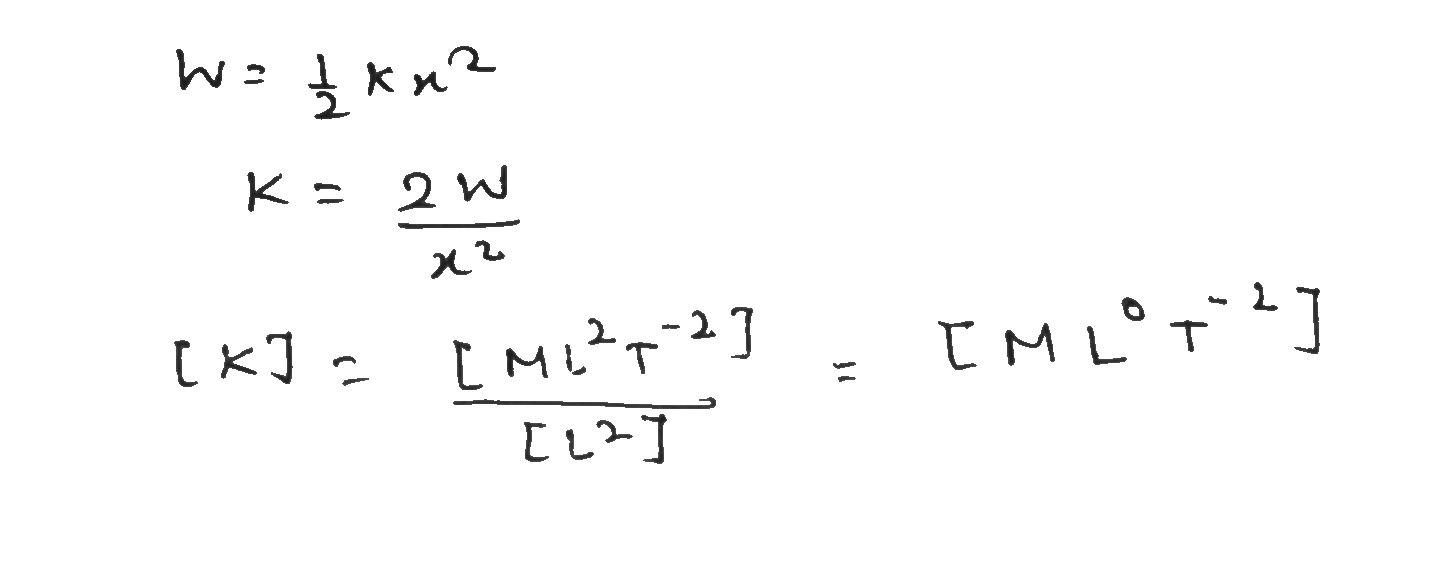 W = 1/2 K x²
K = 2W / x²
[K] = [ML²T⁻²] / [L²] = [ML⁰T⁻²]